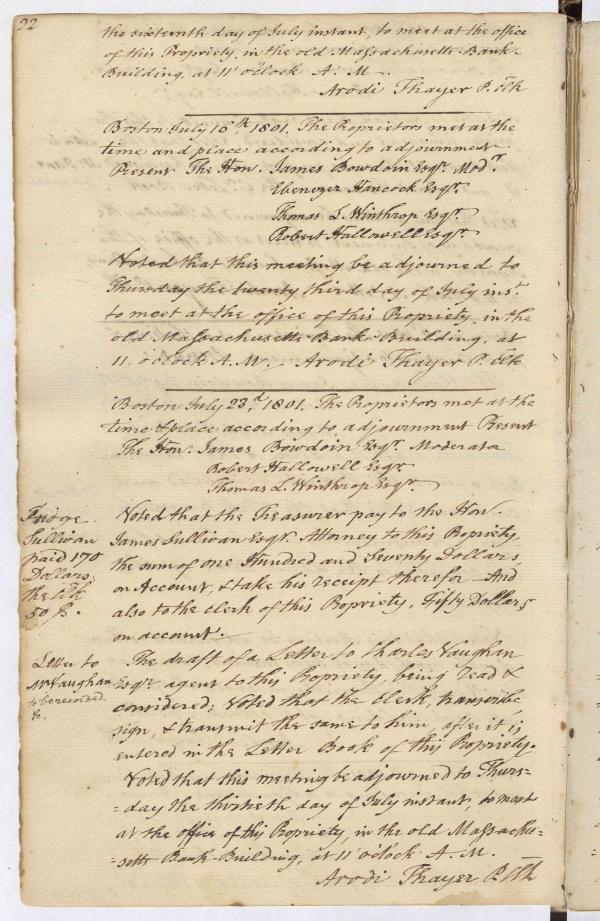 92
the sixteenth day of July instant, to meet at the office
of this Propriety, in the old Massachusetts-Bank-
Building, at 11 oClock A. M.
Arodi Thayer P. Clk
Boston July 16th 1801. The Proprietors met at the
time and place according to adjournment
Present The Hon. James Bowdoin Esqr. Modr.
Ebenezer Hancock Esqr.
Thomas L. Winthrop Esqr.
Robert Hallowell Esqr.
Voted that this meeting be adjourned to
Thursday the twenty third day of July inst.
to meet at the office of this Propriety, in the
old Massachusetts Bank-Building, at
11, oClock A.M. Arodi Thayer P. Clk
Boston July 23,d 1801. The Proprietors met at the
time & place according to adjournment Present
The Hon. James Bowdoin Esqr. Moderator
Robert Hallowell Esqr.
Thomas L. Winthrop Esqr.
Judge
Sullivan
paid 170
Dollars,
the Clk
50 $.
Voted that the Treasurer pay to the Hon.
James Sullivan Esqr. Attorney to this Propriety,
the sum of one Hundred and Seventy Dollars,
on Account, & take his receipt therefor – And
also to the clerk of this Propriety, Fifty Dollars
on account.
Letter to
Mr Vaughan
to be recorded
&c.
The draft of a Letter to Charles Vaughan
Esqr. agent to this Propriety, being read &
considered; Voted that the Clerk, transcribe
sign, & transmit the same to him, after it is
entered in the Letter Book of this Propriety.
Voted that this meeting be adjourned to Thurs-
=day the thirtieth day of July instant, to meet
at the office of this Propriety, in the old Massachu-
=setts Bank-Building, at 11 oClock A. M.
Arodi Thayer P. Clk